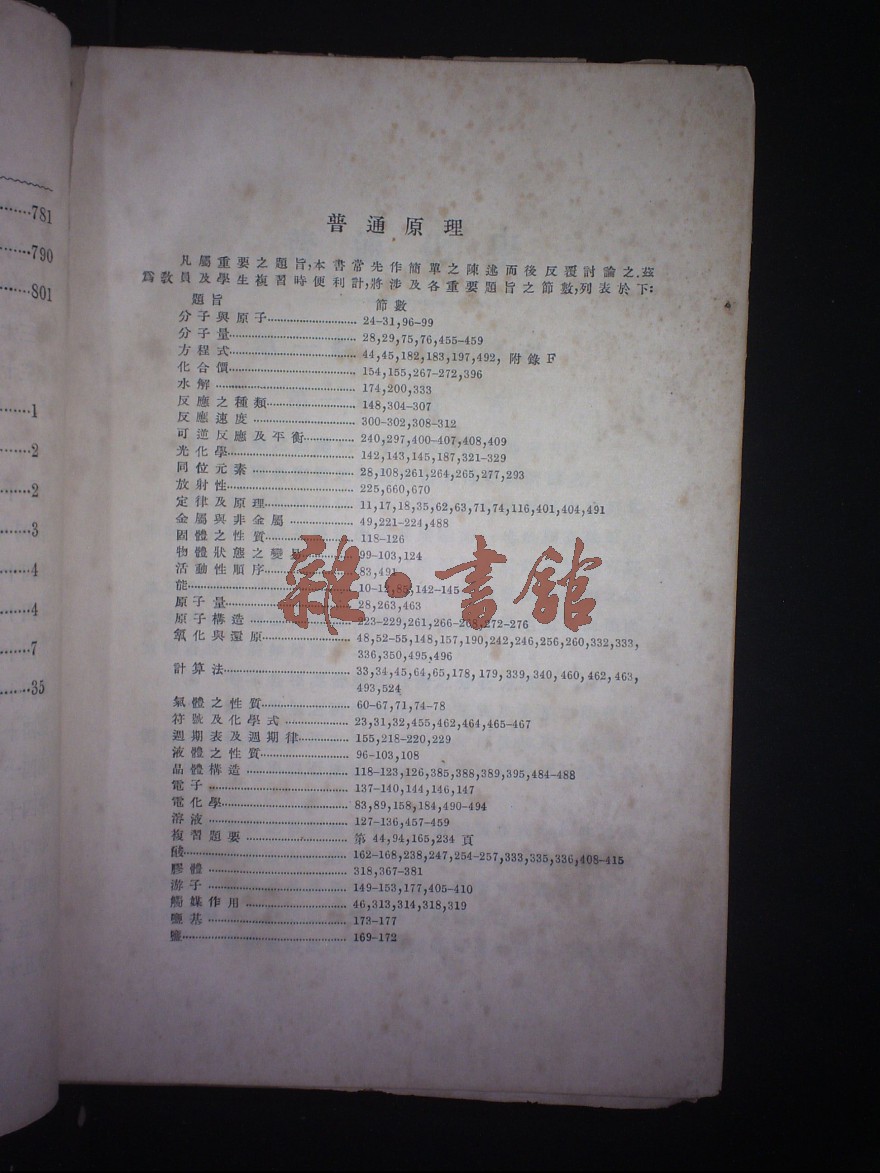 781
790
801
1
2
2
3
4
4
7
35
普通原理
凡屬重要之題旨,本書常先作簡單之陳述而後反覆討論之.茲
爲敎員及學生複習時便利計,將涉及各重要題旨之節數,列表於下:
題旨 節數
分子與原子 24-31,96-99
分子量 28,29,75,76,455-459
方程式 44,45,182,183,197,492, 附錄F
化合價 154,155,267-272,396
水解 174,200,333
反應之種類 148,304-307
反應速度 300-302,308-312
可逆反應及平衡 240,297,400-407,408,409
光化學 142,143,145,187,321-329
同位元素 28,108,261,264,265,277,293
放射性 225,660,670
定律及原理 11,17,18,35,62,63,71,74,116,401,404,491
金屬與非金屬 49,221-224,488
固體之性質 118-126
物體狀態之變易 99-103,124
活動性順序 83,491
能 10-12,82,142-145
原子量 28,263,463
原子構造 223-229,261,266-268,272-276
氧化與還原 48,52-55,148,157,190,242,246,256,260,332,333,
336,350,495,496
計算法 33,34,45,64,65,178,179,339,340,460,462,463,
493,524
氣體之性質 60-67,71,74-78
符號及化學式 23,31,32,455,462,464,465-467
週期表及週期律 155,218-220,229
液體之性質 96-103,108
晶體構造 118-123,126,385,388,389,395,484-488
電子 137-140,144,146,147
電化學 83,89,158,184,490-494
溶液 127-136,457-459
複習題要 第44,94,165,234頁
酸 162-168,238,247,254-257,333,335,336,408-415
膠體 318,367-381
游子 149-153,177,405-410
觸媒作用 46,313,314,318,319
鹽基 173-177
鹽 169-172
雜·書館